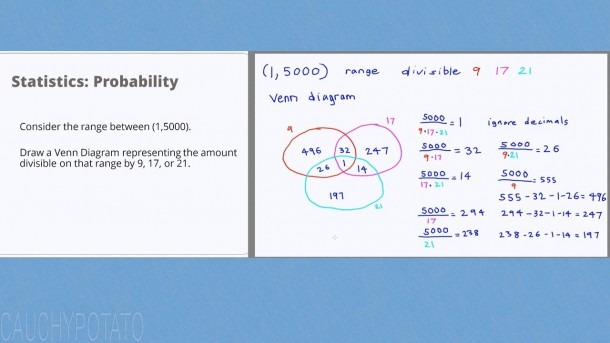 Statistics: Probability
Consider the range between (1,5000).
Draw a Venn Diagram representing the amount
divisible on that range by 9, 17, or 21.
(1, 5000) range divisible 9 17 21
Venn diagram
9
17
496 32 247
26 1 14
197
21
5000/9·17·21 = 1 ignore decimals
5000/9·17 = 32 5000/9·21 = 26
5000/17·21 = 14 5000/9 = 555
555-32-1-26=496
5000/17 = 294 294-32-1-14=247
5000/21 = 238 238-26-1-14=197
CAUCHYPOTATO